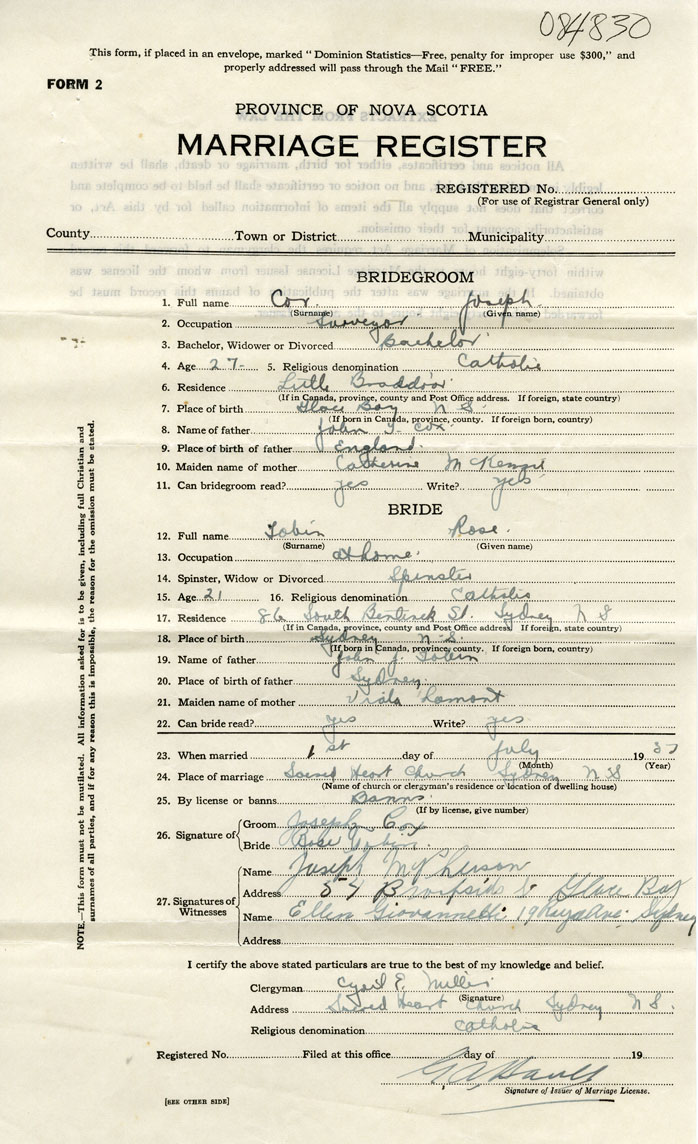 084830
This form, if placed in an envelope, marked "Dominion Statistics—Free, penalty for improper use $300," and
properly addressed will pass through the Mail "FREE."
FORM 2
PROVINCE OF NOVA SCOTIA
MARRIAGE REGISTER
REGISTERED No.
(For use of Registrar General only)
County Town or District Municipality
BRIDEGROOM
1. Full name Cox Joseph
(Surname) (Given name)
2. Occupation Surveyor
3. Bachelor, Widower or Divorced Bachelor
4. Age 27 5. Religious denomination Catholic
6. Residence Little Braddoir
(If in Canada, province, county and Post Office address. If foreign, state country)
7. Place of birth Glace Bay N S
(If born in Canada, province, county. If foreign born, country)
8. Name of father John Cox
9. Place of birth of father England
10. Maiden name of mother Catherine McKenzie
11. Can bridegroom read? yes Write? yes
BRIDE
12. Full name Tobin Rose
(Surname) (Given name)
13. Occupation at home
14. Spinster, Widow or Divorced Spinster
15. Age 21 16. Religious denomination Catholic
17. Residence 86 South Bentinck St. Sydney N S
(If in Canada, province, county and Post Office address If foreign, state country)
18. Place of birth Sydney N. S.
(If born in Canada, province, county. If foreign born, country)
19. Name of father John J. Tobin
20. Place of birth of father Sydney
21. Maiden name of mother Viola Lamont
22. Can bride read? yes Write? yes
23. When married 1st day of July 1937
(Month) (Year)
24. Place of marriage Sacred Heart Church Sydney N S
(Name of church or clergyman's residence or location of dwelling house)
25. By license or banns Banns
(If by license, give number)
26. Signature of
Groom Joseph Cox
Bride Rose Tobin
27. Signatures of Witnesses
Name Joseph McPherson
Address 54 Brookside St Glace Bay
Name Ellen Giovannetti 19 Ave. Sydney
Address
I certify the above stated particulars are true to the best of my knowledge and belief.
Clergyman Cyril E. Miller
(Signature)
Address Sacred Heart Church Sydney N S.
Religious denomination Catholic
Registered No. Filed at this office day of 19
Signature of Issuer of Marriage License.
[SEE OTHER SIDE]
NOTE.—This form must not be mutilated. All information asked for is to be given, including full Christian and
surnames of all parties, and if for any reason this is impossible, the reason for the omission must be stated.